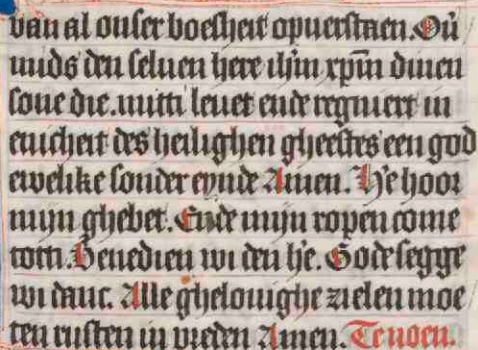 van al onser boesheit opuerstaen. Ou̅
mids den seluen here ihm̅ xpm̅ dinen
sone die mitti leuet ende regneert in
enicheit des heilighen gheestes een god
ewelike sonder eynde Amen. He̅ hoor
mijn ghebet. Ende mijn ropen come
totti. Benedien wi den he̅. Gode segge
wi danc. Alle ghelouighe zielen moe
ten rusten in vreden Amen. Te noen.